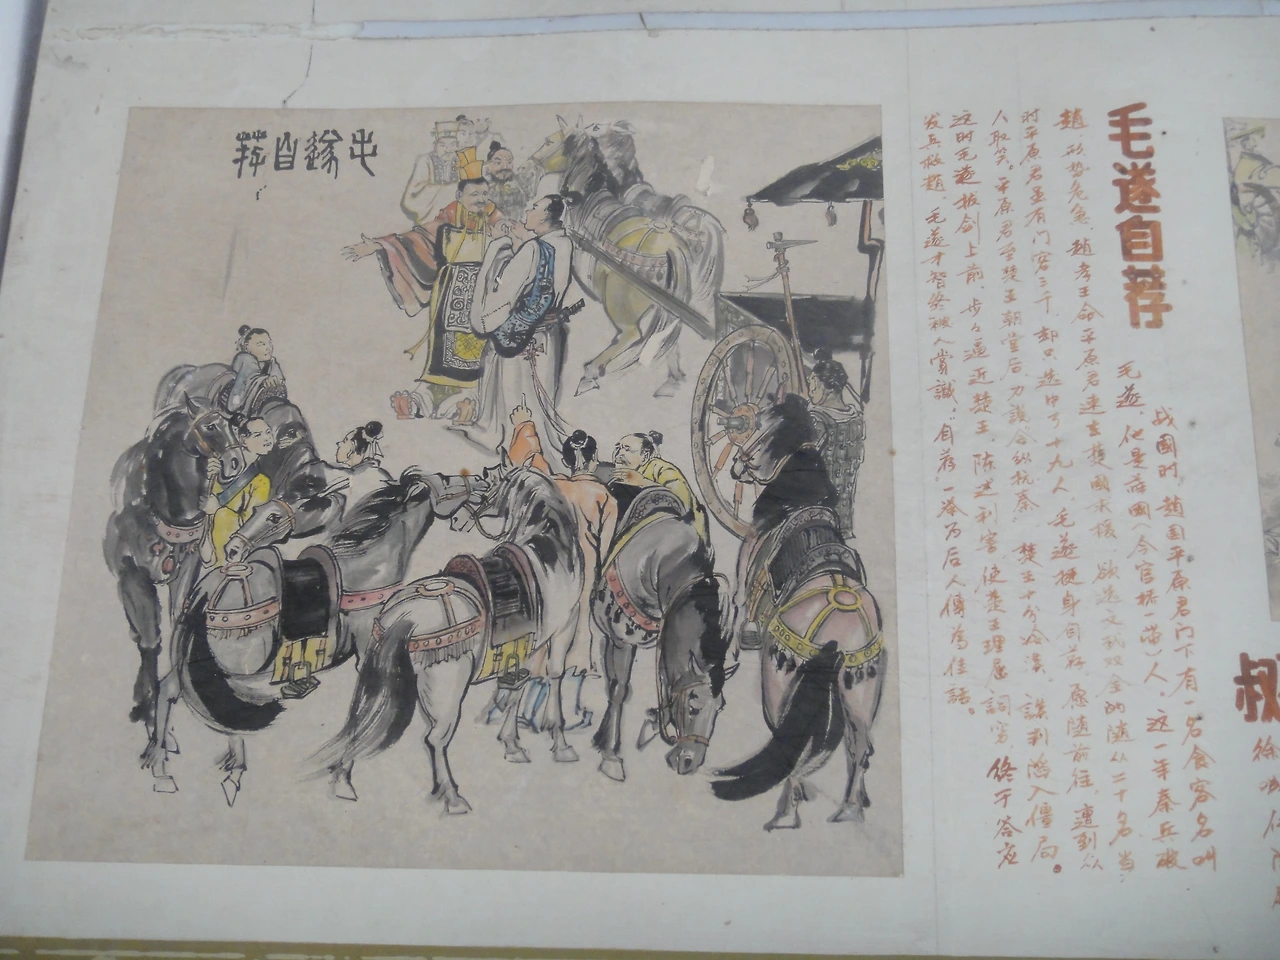 毛遂自荐
毛遂自荐
战国时，赵国平原君门下有一名食客名叫
毛遂，他是薛国（今官桥一带）人。这一年秦兵破
赵，形势危急，赵孝王命平原君速去楚国求援，欲选文武双全的随从二十名，当
时平原君虽有门客三千，却只选中了十九人，毛遂挺身自荐，愿随前往，遭到众
人取笑。平原君至楚王朝堂后，力议合纵抗秦，楚王十分冷漠，谈判陷入僵局。
这时毛遂拔剑上前，步步逼近楚王，陈述利害，使楚王理屈词穷，终于答应
发兵救赵，毛遂才智终被人赏识。"自荐"一举为后人傳为佳話。